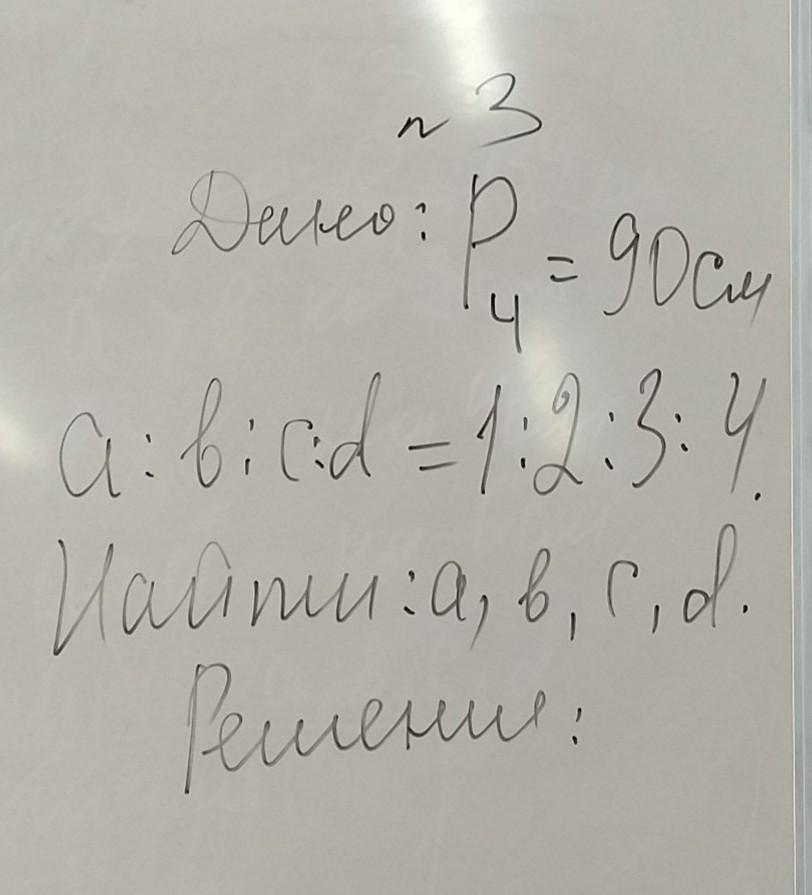 № 3
Дано: P₄ = 90 см
a : b : c : d = 1 : 2 : 3 : 4.
Найти: a, b, c, d.
Решение: